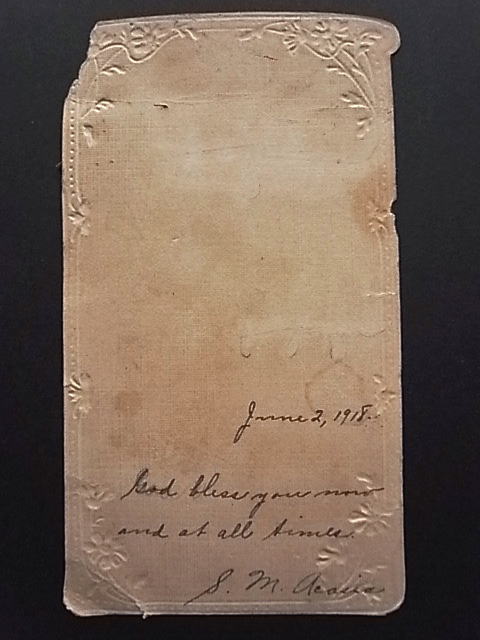 June 2, 1918.
God bless you now
and at all times.
S. M.